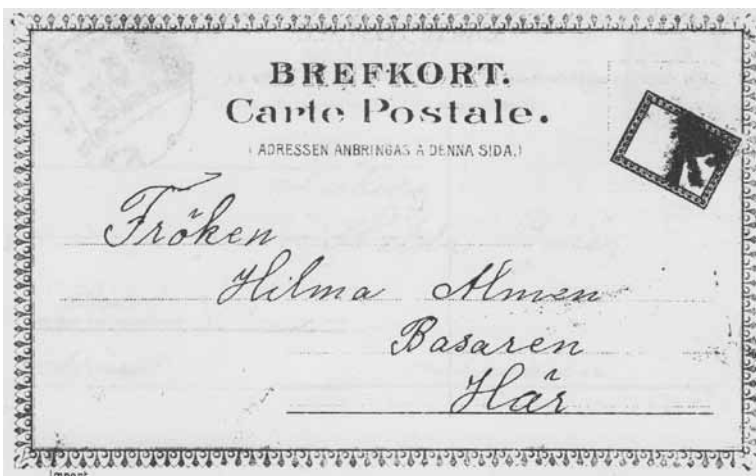 BREFKORT.
Carte Postale.
(ADRESSEN ANBRINGAS Å DENNA SIDA.)
Fröken
Hilma Almen
Basaren
Här
Import